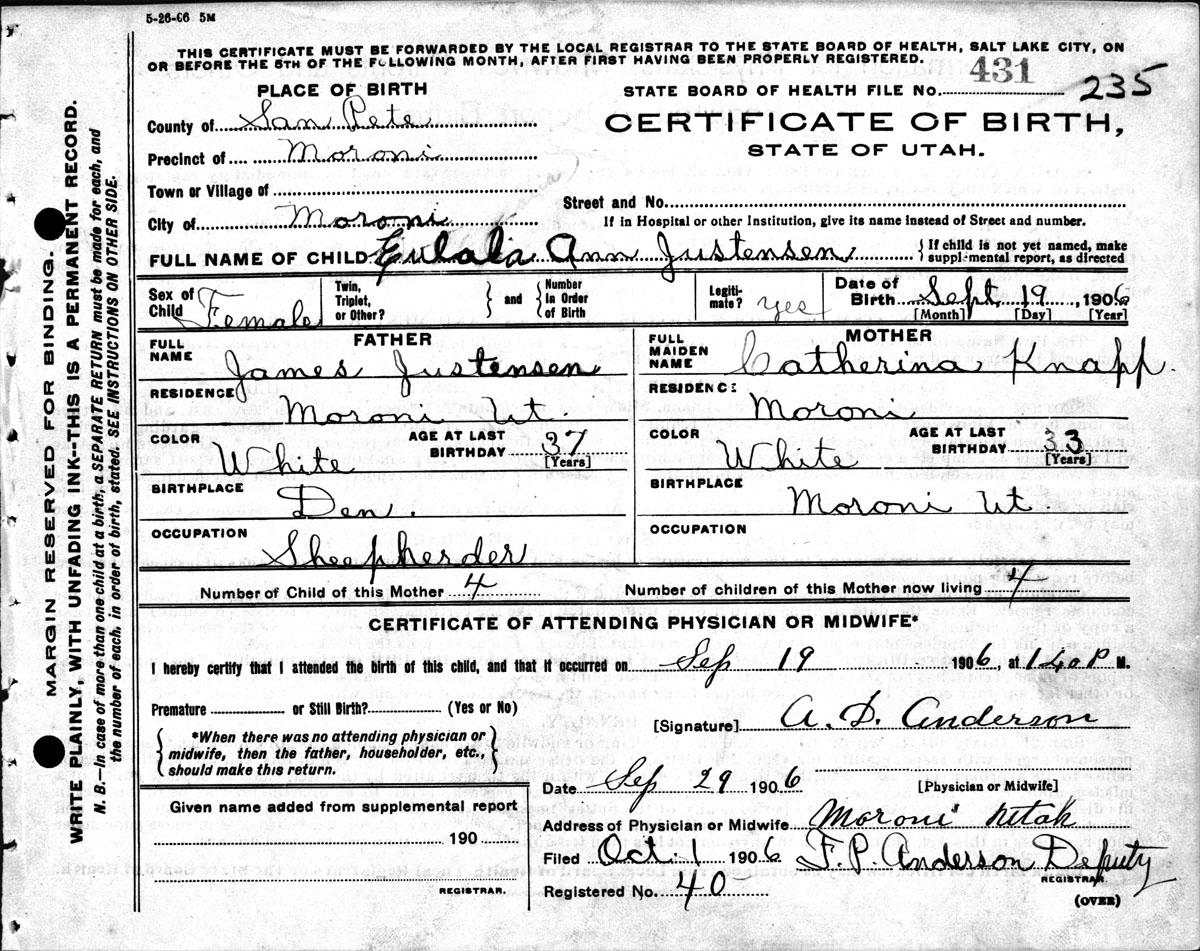 5-26-06 5M
THIS CERTIFICATE MUST BE FORWARDED BY THE LOCAL REGISTRAR TO THE STATE BOARD OF HEALTH, SALT LAKE CITY, ON
OR BEFORE THE 5TH OF THE FOLLOWING MONTH, AFTER FIRST HAVING BEEN PROPERLY REGISTERED.
431
235
PLACE OF BIRTH
STATE BOARD OF HEALTH FILE NO.
County of San Pete
CERTIFICATE OF BIRTH,
Precinct of Moroni
STATE OF UTAH.
Town or Village of
Street and No.
City of Moroni
If in Hospital or other Institution, give its name instead of Street and number.
FULL NAME OF CHILD Eulala Ann Justensen { If child is not yet named, make supplemental report, as directed
Sex of Child Female Twin, Triplet, or Other? } and { Number in Order of Birth Legitimate? yes Date of Birth Sept 19, 1906
[Month] [Day] [Year]
FATHER
MOTHER
FULL NAME James Justensen
FULL MAIDEN NAME Catherina Knapp.
RESIDENCE Moroni Ut.
RESIDENCE Moroni
COLOR White AGE AT LAST BIRTHDAY 37 [Years]
COLOR White AGE AT LAST BIRTHDAY 33 [Years]
BIRTHPLACE Den.
BIRTHPLACE Moroni Ut.
OCCUPATION Sheepherder
OCCUPATION
Number of Child of this Mother 4 Number of children of this Mother now living 4
CERTIFICATE OF ATTENDING PHYSICIAN OR MIDWIFE*
I hereby certify that I attended the birth of this child, and that it occurred on Sep 19 1906, at 1 40 P M.
Premature or Still Birth? (Yes or No)
[Signature] A. D. Anderson
{ *When there was no attending physician or
midwife, then the father, householder, etc.,
should make this return. }
Date Sep 29 1906 [Physician or Midwife]
Given name added from supplemental report
190
REGISTRAR.
Address of Physician or Midwife Moroni Utah
Filed Oct. 1 1906 F. P. Anderson Deputy
REGISTRAR.
Registered No. 40
(OVER)
MARGIN RESERVED FOR BINDING.
WRITE PLAINLY, WITH UNFADING INK--THIS IS A PERMANENT RECORD.
N. B.—In case of more than one child at a birth, a SEPARATE RETURN must be made for each, and
the number of each, in order of birth, stated. SEE INSTRUCTIONS ON OTHER SIDE.